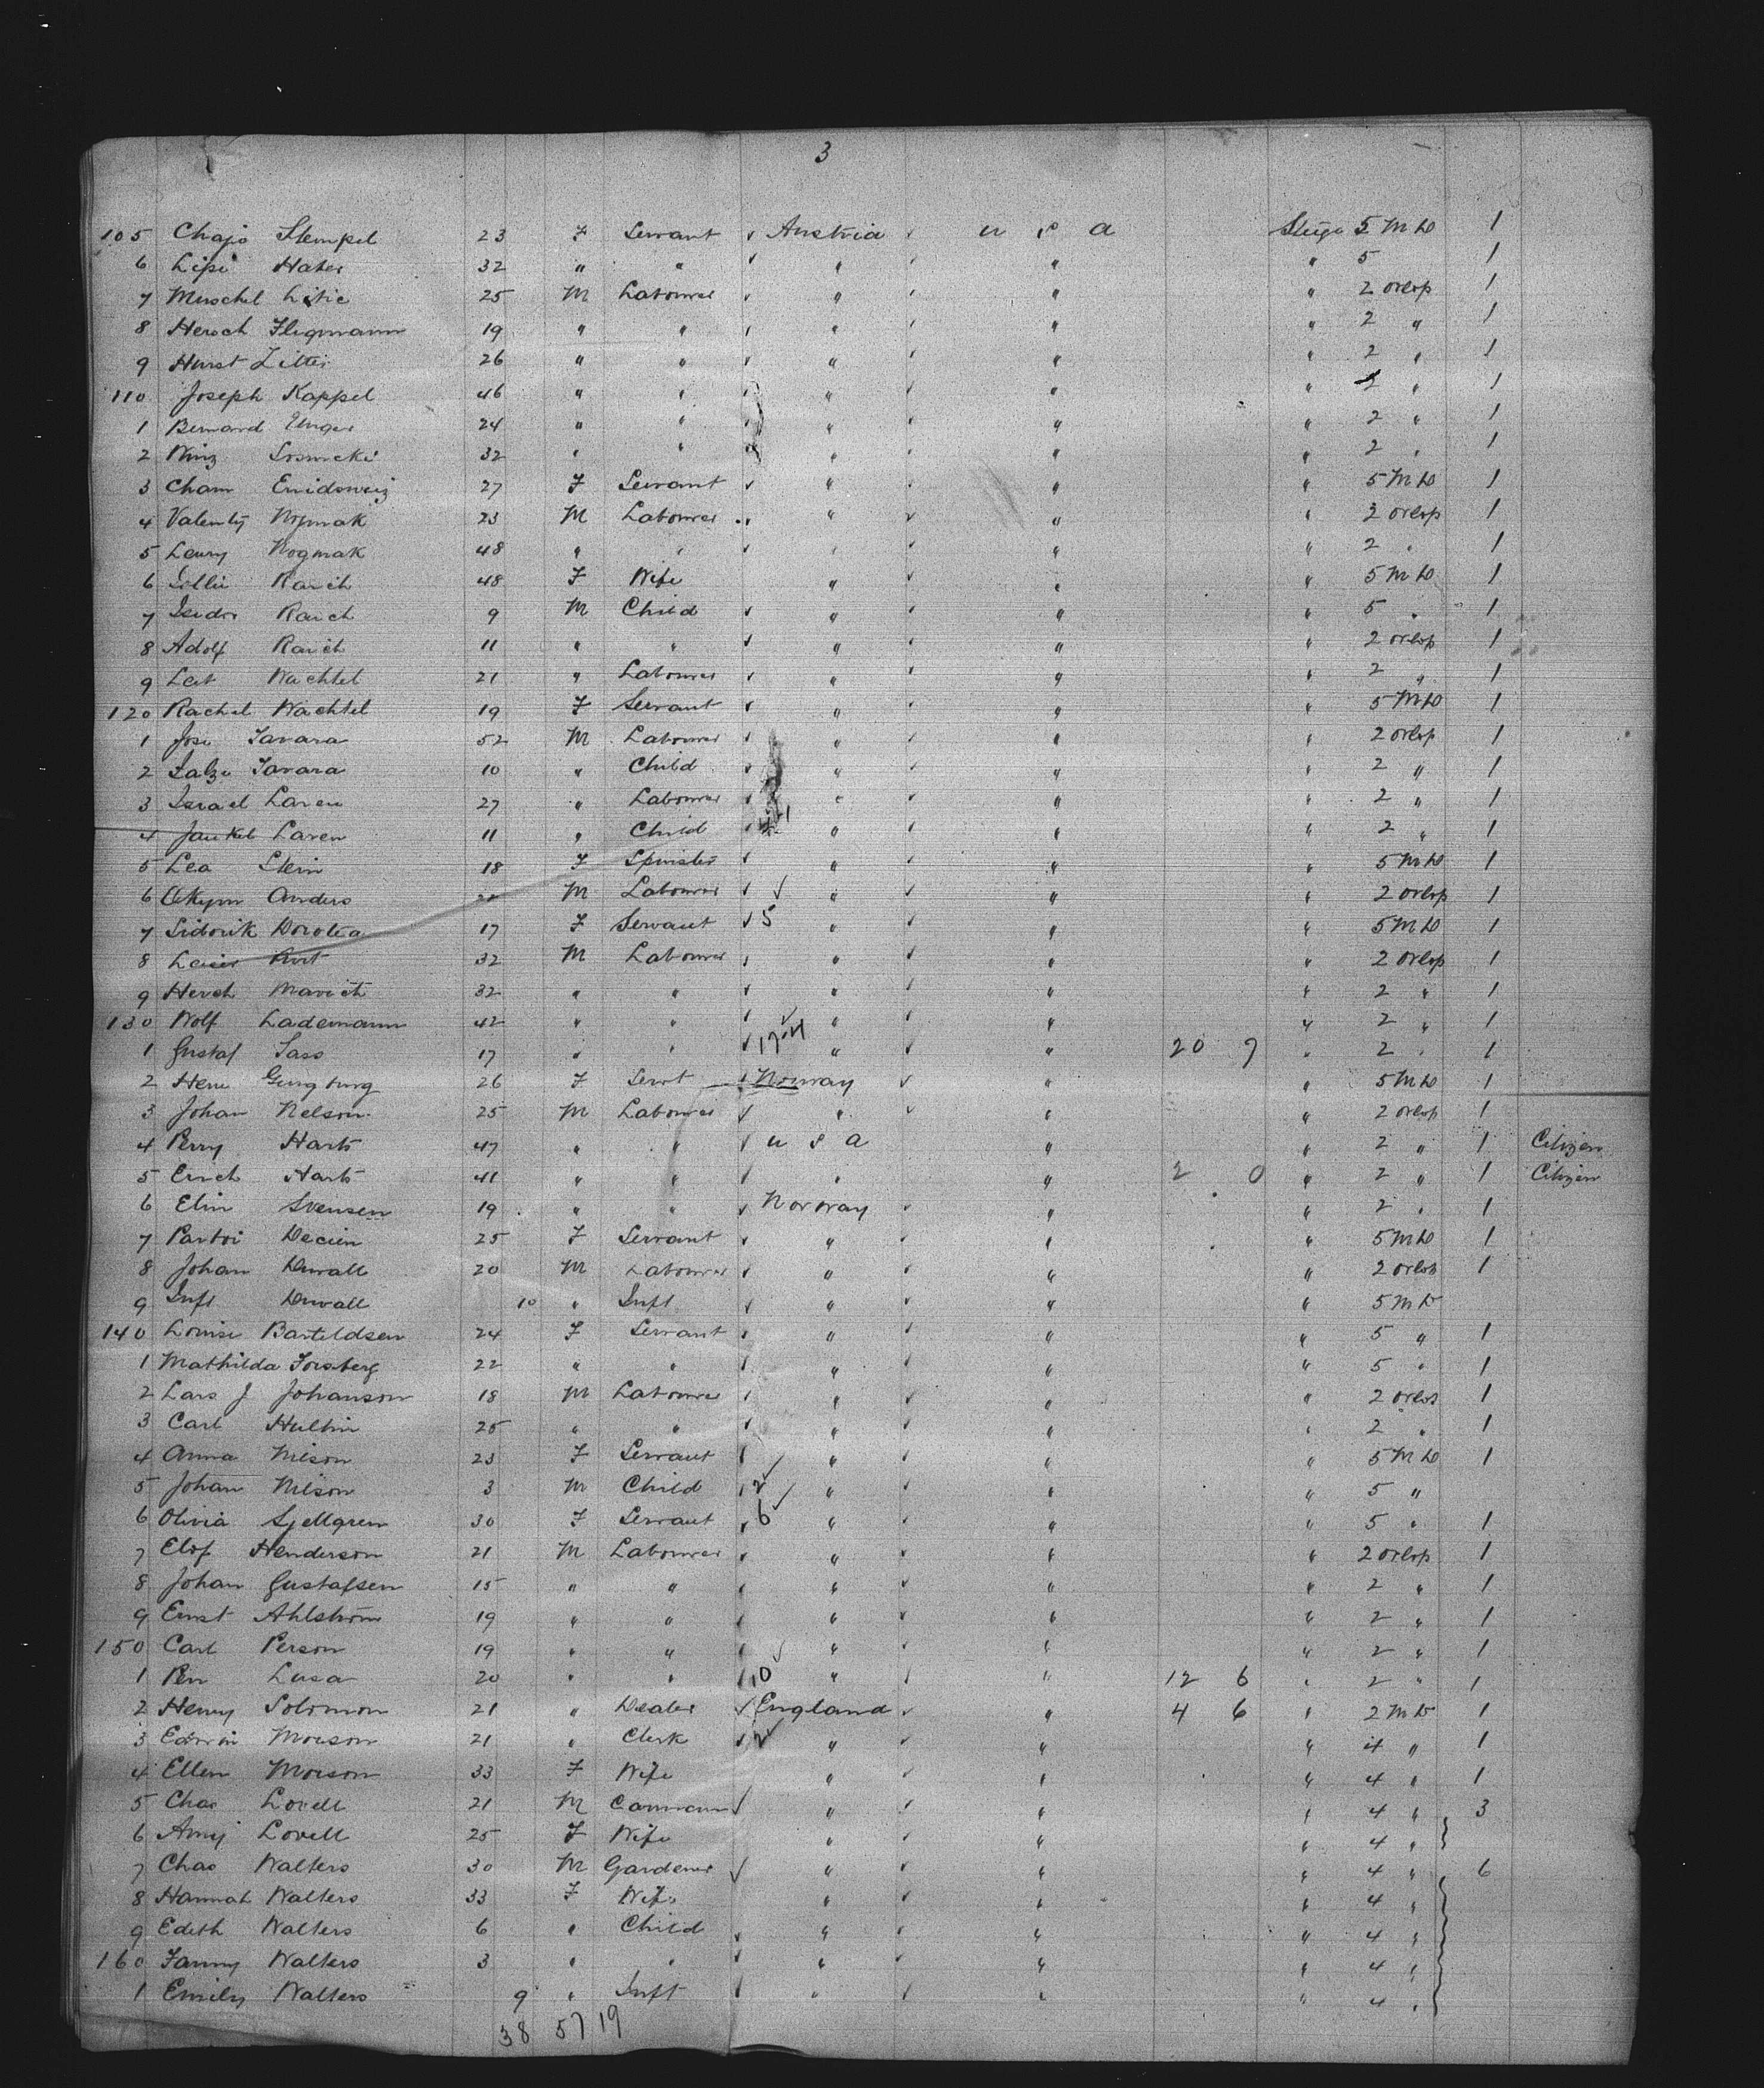 3
105 Chajo Stempel 23 F Servant Austria U S A Stege 5 M D 1
6 Lipi Hater 32 " " " " " 5 1
7 Muschel Litie 25 M Labourer " " " 2 orlop 1
8 Hersch 19 " " " " " 2 " 1
9 Hurst 26 " " " " " 2 " 1
110 Joseph Kappel 46 " " " " " 2 " 1
1 Bernard Unger 24 " " " " " 2 " 1
2 32 " " " " " 2 " 1
3 Cham 27 F Servant " " " 5 M D 1
4 Valenty 23 M Labourer " " " 2 orlop 1
5 48 " " " " " 2 " 1
6 48 F Wife " " " 5 M D 1
7 Isidor Rauch 9 M Child " " " 5 " 1
8 Adolf Rauch 11 " " " " " 2 orlop 1
9 Wachtel 21 " Labourer " " " 2 " 1
120 Rachel Wachtel 19 F Servant " " " 5 M D 1
1 Javara 52 M Labourer " " " 2 orlop 1
2 Javara 10 " Child " " " 2 " 1
3 Israel Laren 27 " Labourer " " " 2 " 1
4 Jankel Laren 11 " Child " " " 2 " 1
5 Lea Stein 18 F Spinster " " " 5 M D 1
6 Anders M Labourer " " " 2 orlop 1
7 Sidorik Dorotea 17 F Servant 5 " " " 5 M D 1
8 32 M Labourer " " " 2 orlop 1
9 Hersh 32 " " " " " 2 " 1
130 Wolf Lademann 42 " " " " " 2 " 1
1 Gustaf Sass 17 " " " " 20 7 " 2 " 1
2 26 F Servt Norway " " 5 M D 1
3 Johan Nelson 25 M Labourer " " " 2 orlop 1
4 Perry Harts 47 " " U S A " " 2 " 1 Citizen
5 Erich Harts 41 " " " " 2 0 " 2 " 1 Citizen
6 Elin Svensen 19 " " Norway " " 2 " 1
7 25 F Servant " " " 5 M D 1
8 Johan Duvall 20 M Labourer " " " 2 orlop 1
9 Inft Duvall 10 " Inft " " " 5 M D
140 Louise Barteldsen 24 F Servant " " " 5 " 1
1 Mathilda Forsberg 22 " " " " " 5 " 1
2 Lars J Johanson 18 M Labourer " " " 2 orlop 1
3 Carl Hultin 25 " " " " " 2 " 1
4 Anna Nilson 23 F Servant " " " 5 M D 1
5 Johan Nilson 3 M Child 2 " " " 5 "
6 Olivia Sjellgren 30 F Servant 6 " " " 5 " 1
7 Elof Henderson 21 M Labourer " " " 2 orlop 1
8 Johan Gustafsen 15 " " " " " 2 " 1
9 Ernst Ahlström 19 " " " " " 2 " 1
150 Carl Person 19 " " " " " 2 " 1
1 Lusa 20 " " 10 " " 12 6 " 2 " 1
2 Henry Solomon 21 " Dealer England " 4 6 " 2 M D 1
3 Edwin Morson 21 " Clerk 2 " " " 4 " 1
4 Ellen Morson 33 F Wife " " " 4 " 1
5 Chas Lovell 21 M Carman " " " 4 " 3
6 Amy Lovell 25 F Wife " " " 4 "
7 Chas Walters 30 M Gardener " " " 4 " 6
8 Hannah Walters 33 F Wife " " " 4 "
9 Edith Walters 6 " Child " " " 4 "
160 Fanny Walters 3 " " " " " 4 "
1 Emily Walters 9 " Inft " " " 4 "
38 57 19